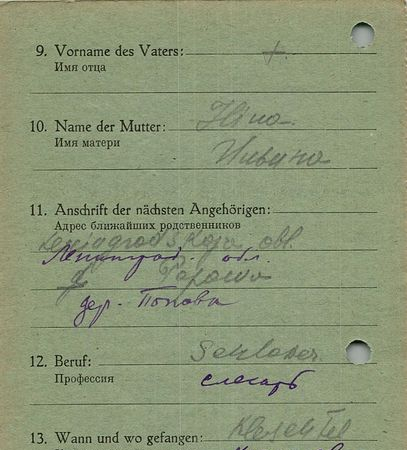 9. Vorname des Vaters: +
Имя отца
10. Name der Mutter:
Имя матери
11. Anschrift der nächsten Angehörigen:
Адрес ближайших родственников
obl.
Ленинград. обл.
дер. Попова
12. Beruf: Schlosser
Профессия слесарь
13. Wann und wo gefangen: